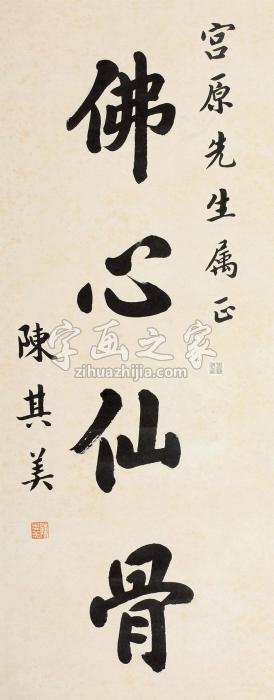 宫原先生属正
佛心仙骨
陳其美
字画之家
zihuazhijia.com